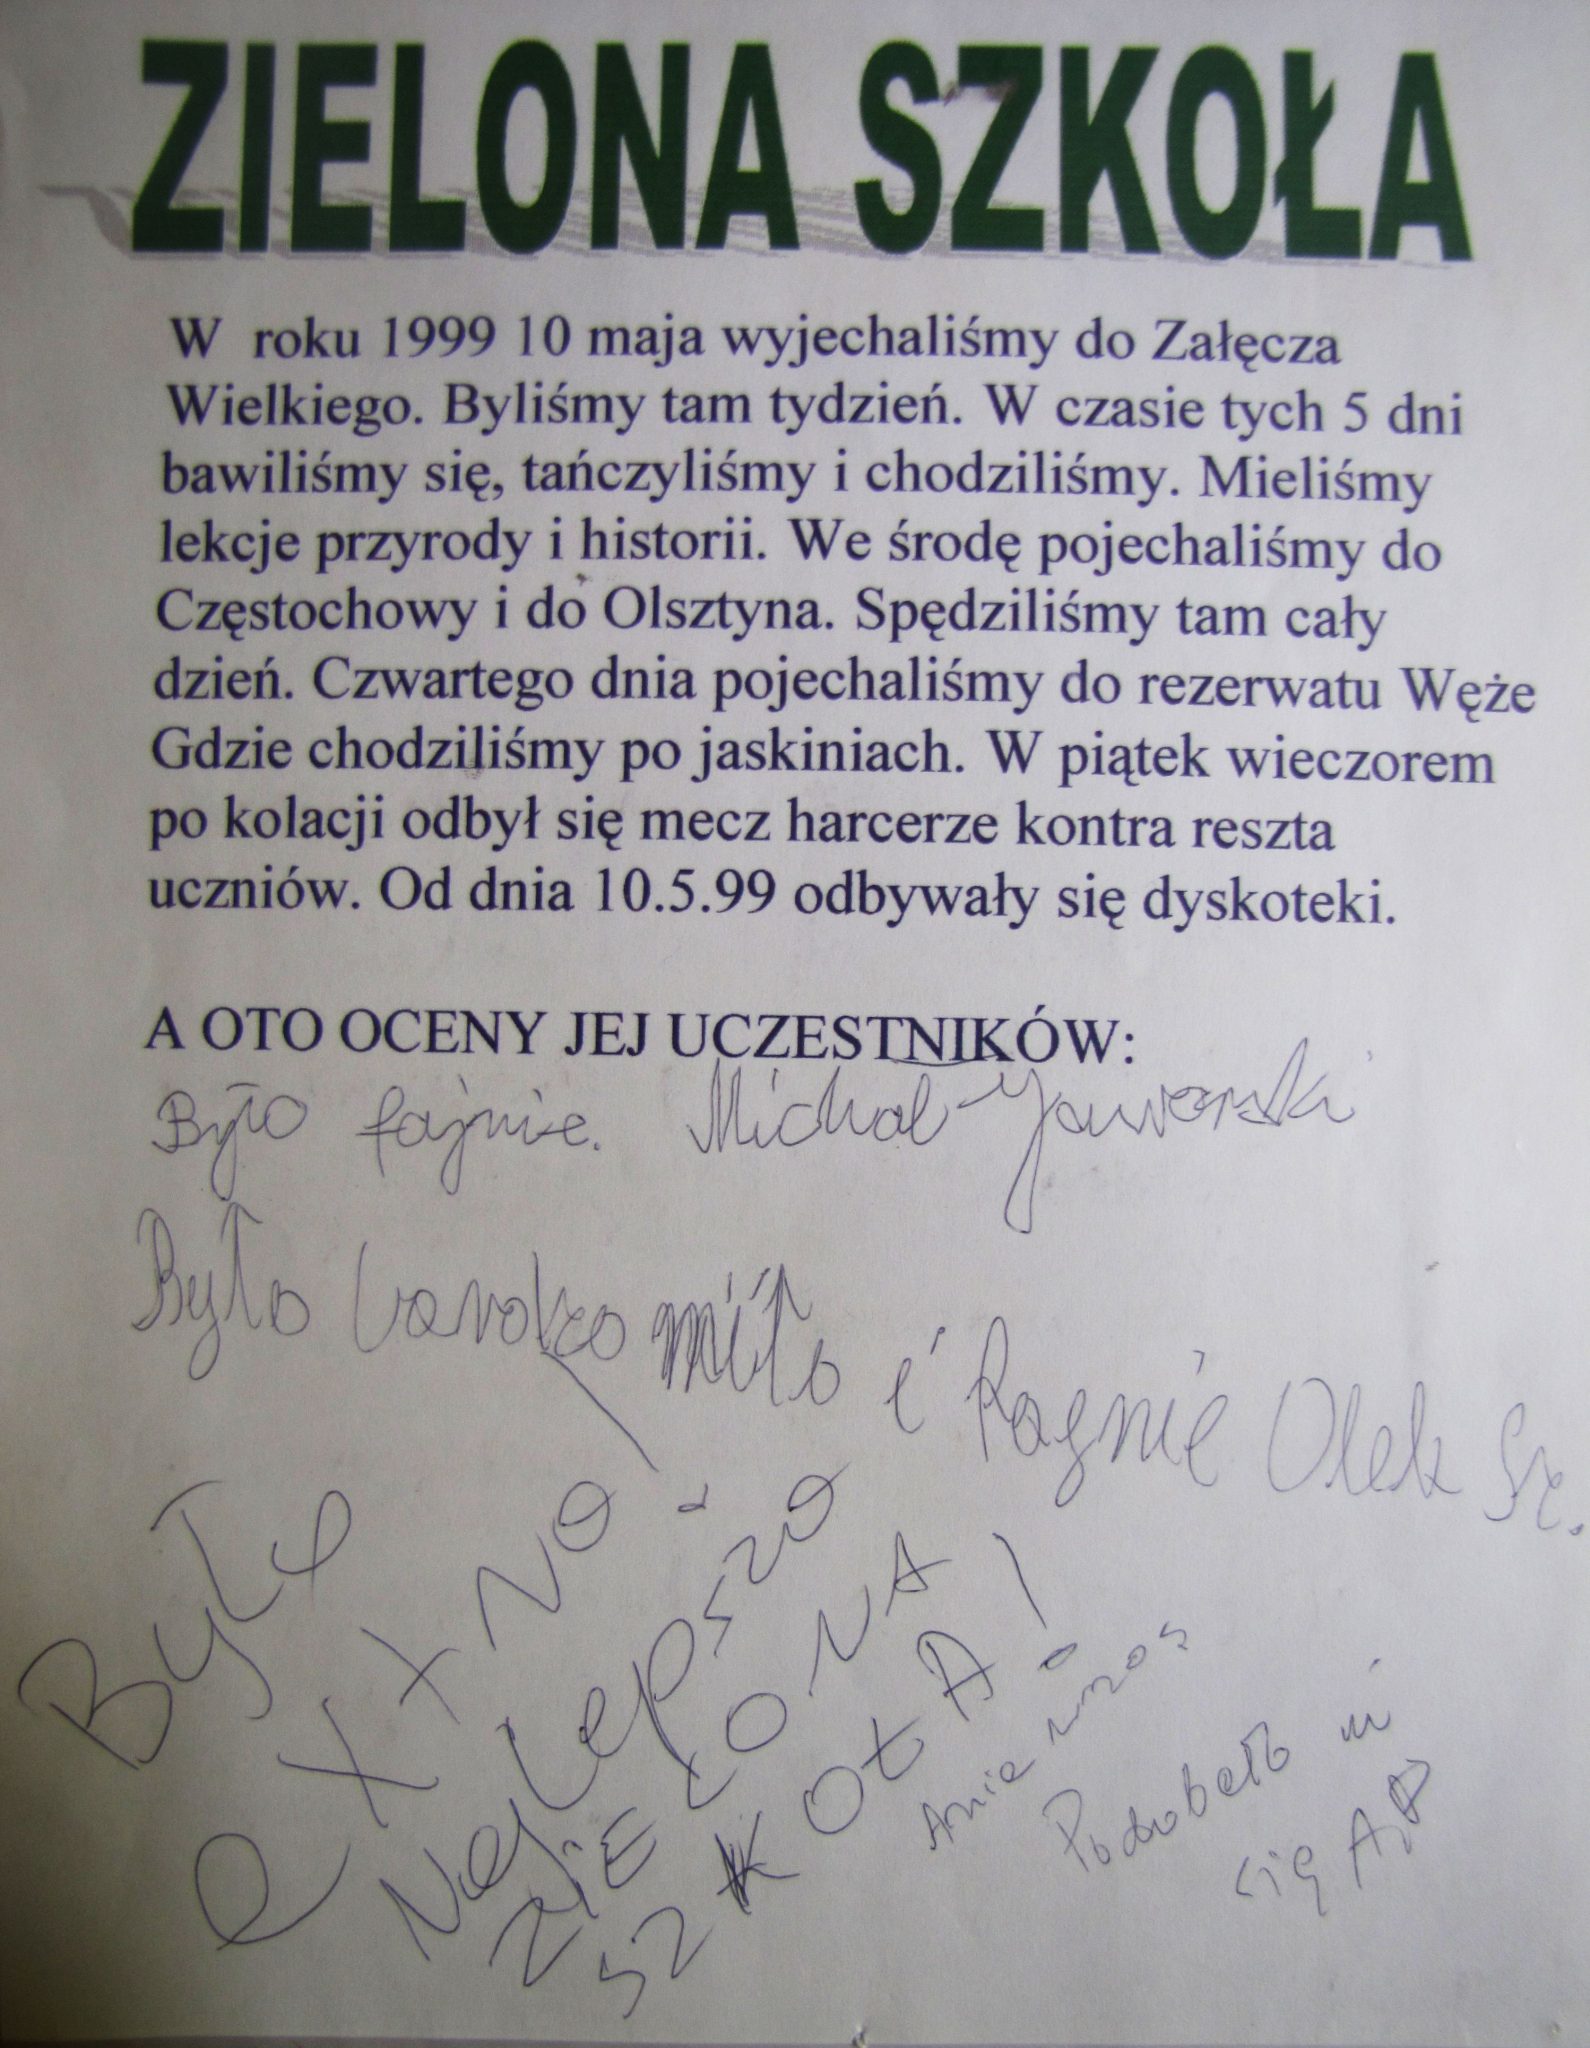 ZIELONA SZKOŁA
W roku 1999 10 maja wyjechaliśmy do Załęcza
Wielkiego. Byliśmy tam tydzień. W czasie tych 5 dni
bawiliśmy się, tańczyliśmy i chodziliśmy. Mieliśmy
lekcje przyrody i historii. We środę pojechaliśmy do
Częstochowy i do Olsztyna. Spędziliśmy tam cały
dzień. Czwartego dnia pojechaliśmy do rezerwatu Węże
Gdzie chodziliśmy po jaskiniach. W piątek wieczorem
po kolacji odbył się mecz harcerze kontra reszta
uczniów. Od dnia 10.5.99 odbywały się dyskoteki.
A OTO OCENY JEJ UCZESTNIKÓW:
Było fajnie. Michał Jaworski
Było bardzo miło i Olek Sz.
Było
extra!
Najlepsza
ZIELONA
SZKOŁA!
Ania
mi
się